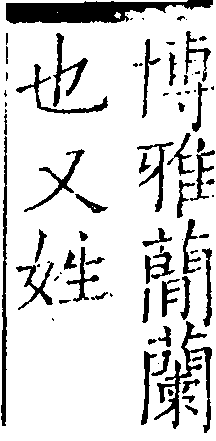 博雅蕳蘭
也又姓